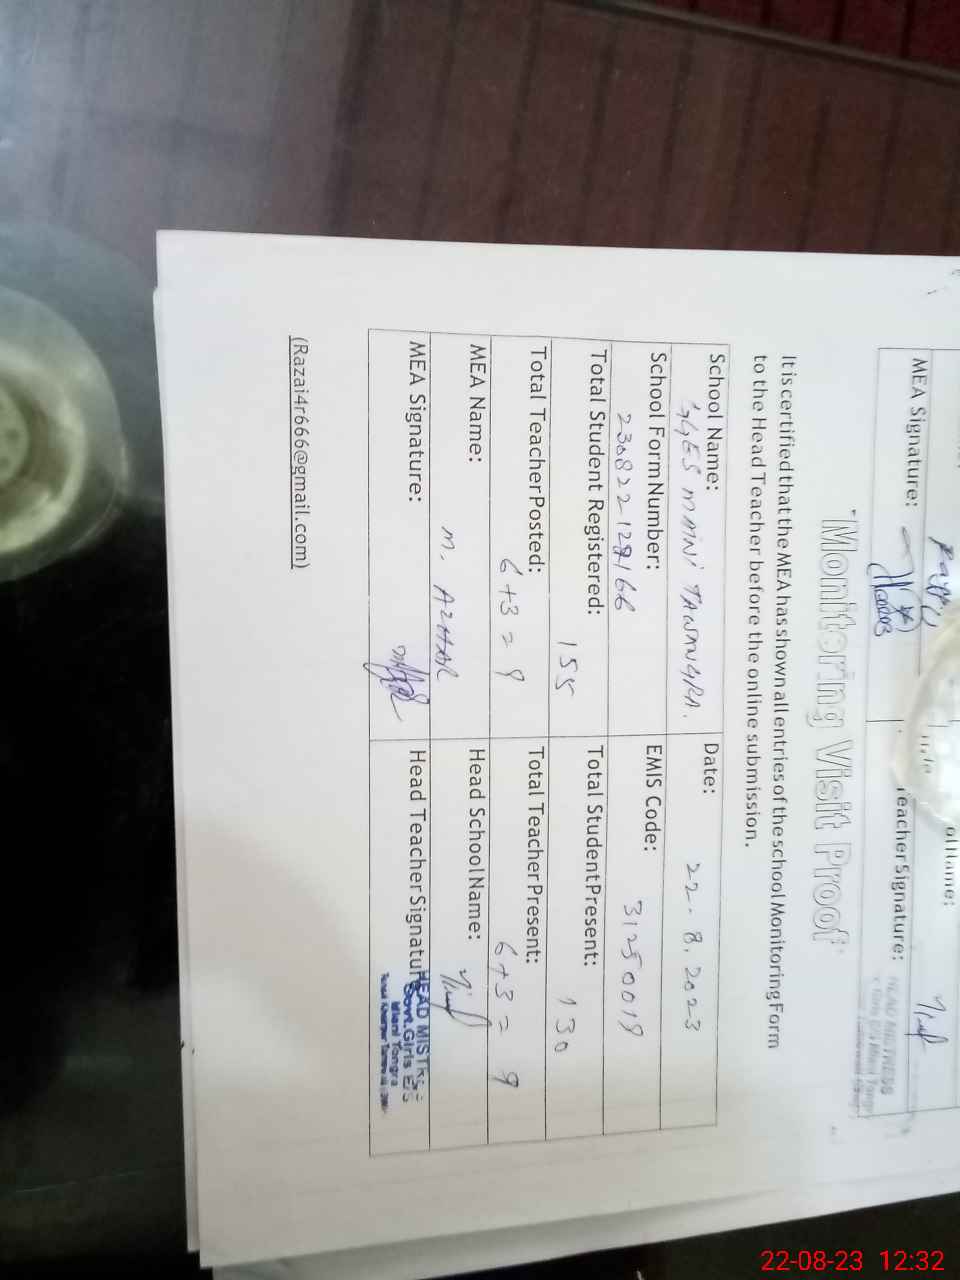 MEA Signature:
Teacher Signature:
"Monitoring Visit Proof"
It is certified that the MEA has shown all entries of the school Monitoring Form
to the Head Teacher before the online submission.
School Name: GGES MAINI
Date: 22.8.2023
School Form Number:
EMIS Code: 31250019
Total Student Registered: 155
Total Student Present: 130
Total Teacher Posted: 6+3=9
Total Teacher Present: 6+3=9
MEA Name: M. AZHAR
Head School Name:
MEA Signature:
Head Teacher Signature
HEAD MISTRESS
Govt. Girls E/S
Miani Tongra
(Razai4r666@gmail.com)
22-08-23 12:32